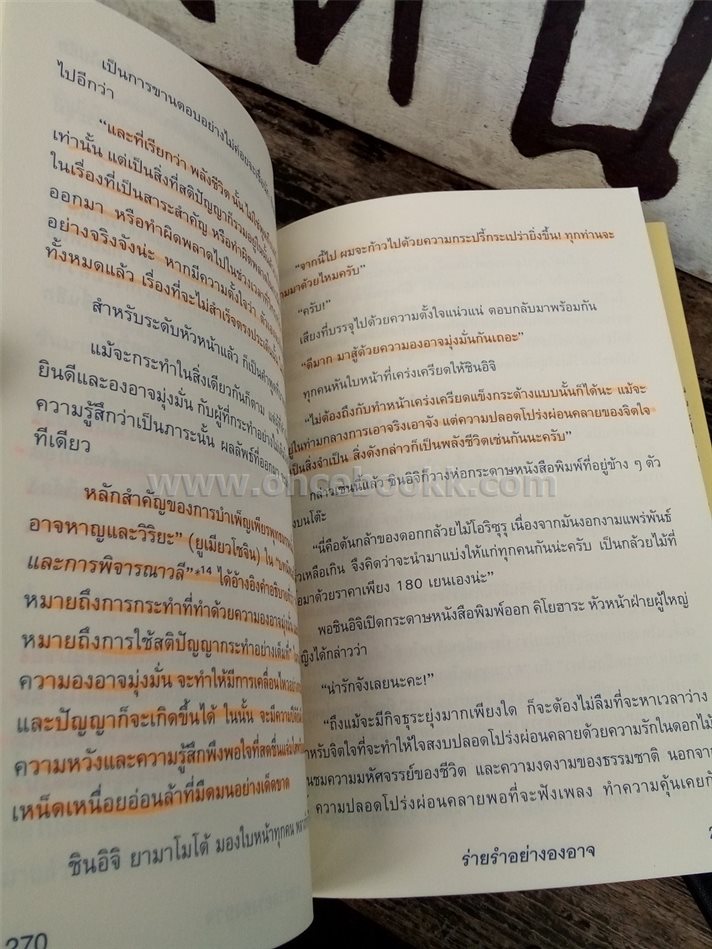 เป็นการขานตอบอย่างไม่ค่อยจะ
ไปอีกว่า
“และที่เรียกว่า พลังชีวิต นั้น
เท่านั้น แต่เป็นสิ่งที่สติปัญญาก็รวมอยู่ใน
ในเรื่องที่เป็นสาระสำคัญ หรือทำผิดพลาด
ออกมา หรือทำผิดพลาดไปในช่วงเวลา
อย่างจริงจังน่ะ หากมีความตั้งใจว่า
ทั้งหมดแล้ว เรื่องที่จะไม่สำเร็จตรงประเด็นนั้น
สำหรับระดับหัวหน้าแล้ว ก็เป็น
แม้จะกระทำในสิ่งเดียวกันก็ตาม แต่
ยินดีและองอาจมุ่งมั่น กับผู้ที่กระทำอย่าง
ความรู้สึกว่าเป็นภาระนั้น ผลลัพธ์ที่ออก
ทีเดียว
หลักสำคัญของการบำเพ็ญเพียรพุทธ
อาจหาญและวิริยะ” (ยูเมียวโชจิน) ใน
และการพิจารณาวลี”*14 ได้อ้างอิงคำอธิบาย
หมายถึงการกระทำที่ทำด้วยความองอาจ
หมายถึงการใช้สติปัญญากระทำอย่างเต็มที่”
ความองอาจมุ่งมั่น จะทำให้มีการเคลื่อนไหว
และปัญญาก็จะเกิดขึ้นได้ ในนั้น จะมีความ
ความหวังและความรู้สึกพึงพอใจที่สดชื่น
เหน็ดเหนื่อยอ่อนล้าที่มืดมนอย่างเด็ดขาด
ชินอิจิ ยามาโมโต้ มองใบหน้าทุกคน
270
“จากนี้ไป ผมจะก้าวไปด้วยความกระปรี้กระเปร่ายิ่งขึ้น! ทุกท่านจะ
ามมาด้วยไหมครับ”
“ครับ!”
เสียงที่บรรจุไปด้วยความตั้งใจแน่วแน่ ตอบกลับมาพร้อมกัน
“ดีมาก มาสู้ด้วยความองอาจมุ่งมั่นกันเถอะ”
ทุกคนหันใบหน้าที่เคร่งเครียดให้ชินอิจิ
“ไม่ต้องถึงกับทำหน้าเคร่งเครียดแข็งกระด้างแบบนั้นก็ได้นะ แม้จะ
อยู่ในท่ามกลางการเอาจริงเอาจัง แต่ความปลอดโปร่งผ่อนคลายของจิตใจ
เป็นสิ่งจำเป็น สิ่งดังกล่าวก็เป็นพลังชีวิตเช่นกันนะครับ”
กล่าวเช่นนี้แล้ว ชินอิจิก็วางห่อกระดาษหนังสือพิมพ์ที่อยู่ข้าง ๆ ตัว
งบนโต๊ะ
“นี่คือต้นกล้าของดอกกล้วยไม้โอริซุรุ เนื่องจากมันงอกงามแพร่พันธุ์
วเหลือเกิน จึงคิดว่าจะนำมาแบ่งให้แก่ทุกคนกันน่ะครับ เป็นกล้วยไม้ที่
อมาด้วยราคาเพียง 180 เยนเองน่ะ”
พอชินอิจิเปิดกระดาษหนังสือพิมพ์ออก คิโยฮาระ หัวหน้าฝ่ายผู้ใหญ่
ญิงได้กล่าวว่า
“น่ารักจังเลยนะคะ!”
“ถึงแม้จะมีกิจธุระยุ่งมากเพียงใด ก็จะต้องไม่ลืมที่จะหาเวลาว่าง
หรับจิตใจที่จะทำให้ใจสงบปลอดโปร่งผ่อนคลายด้วยความรักในดอกไม้
นชมความมหัศจรรย์ของชีวิต และความงดงามของธรรมชาติ นอกจาก
ความปลอดโปร่งผ่อนคลายพอที่จะฟังเพลง ทำความคุ้นเคยกับ
ร่ายรำอย่างองอาจ
www.oncebookk.com